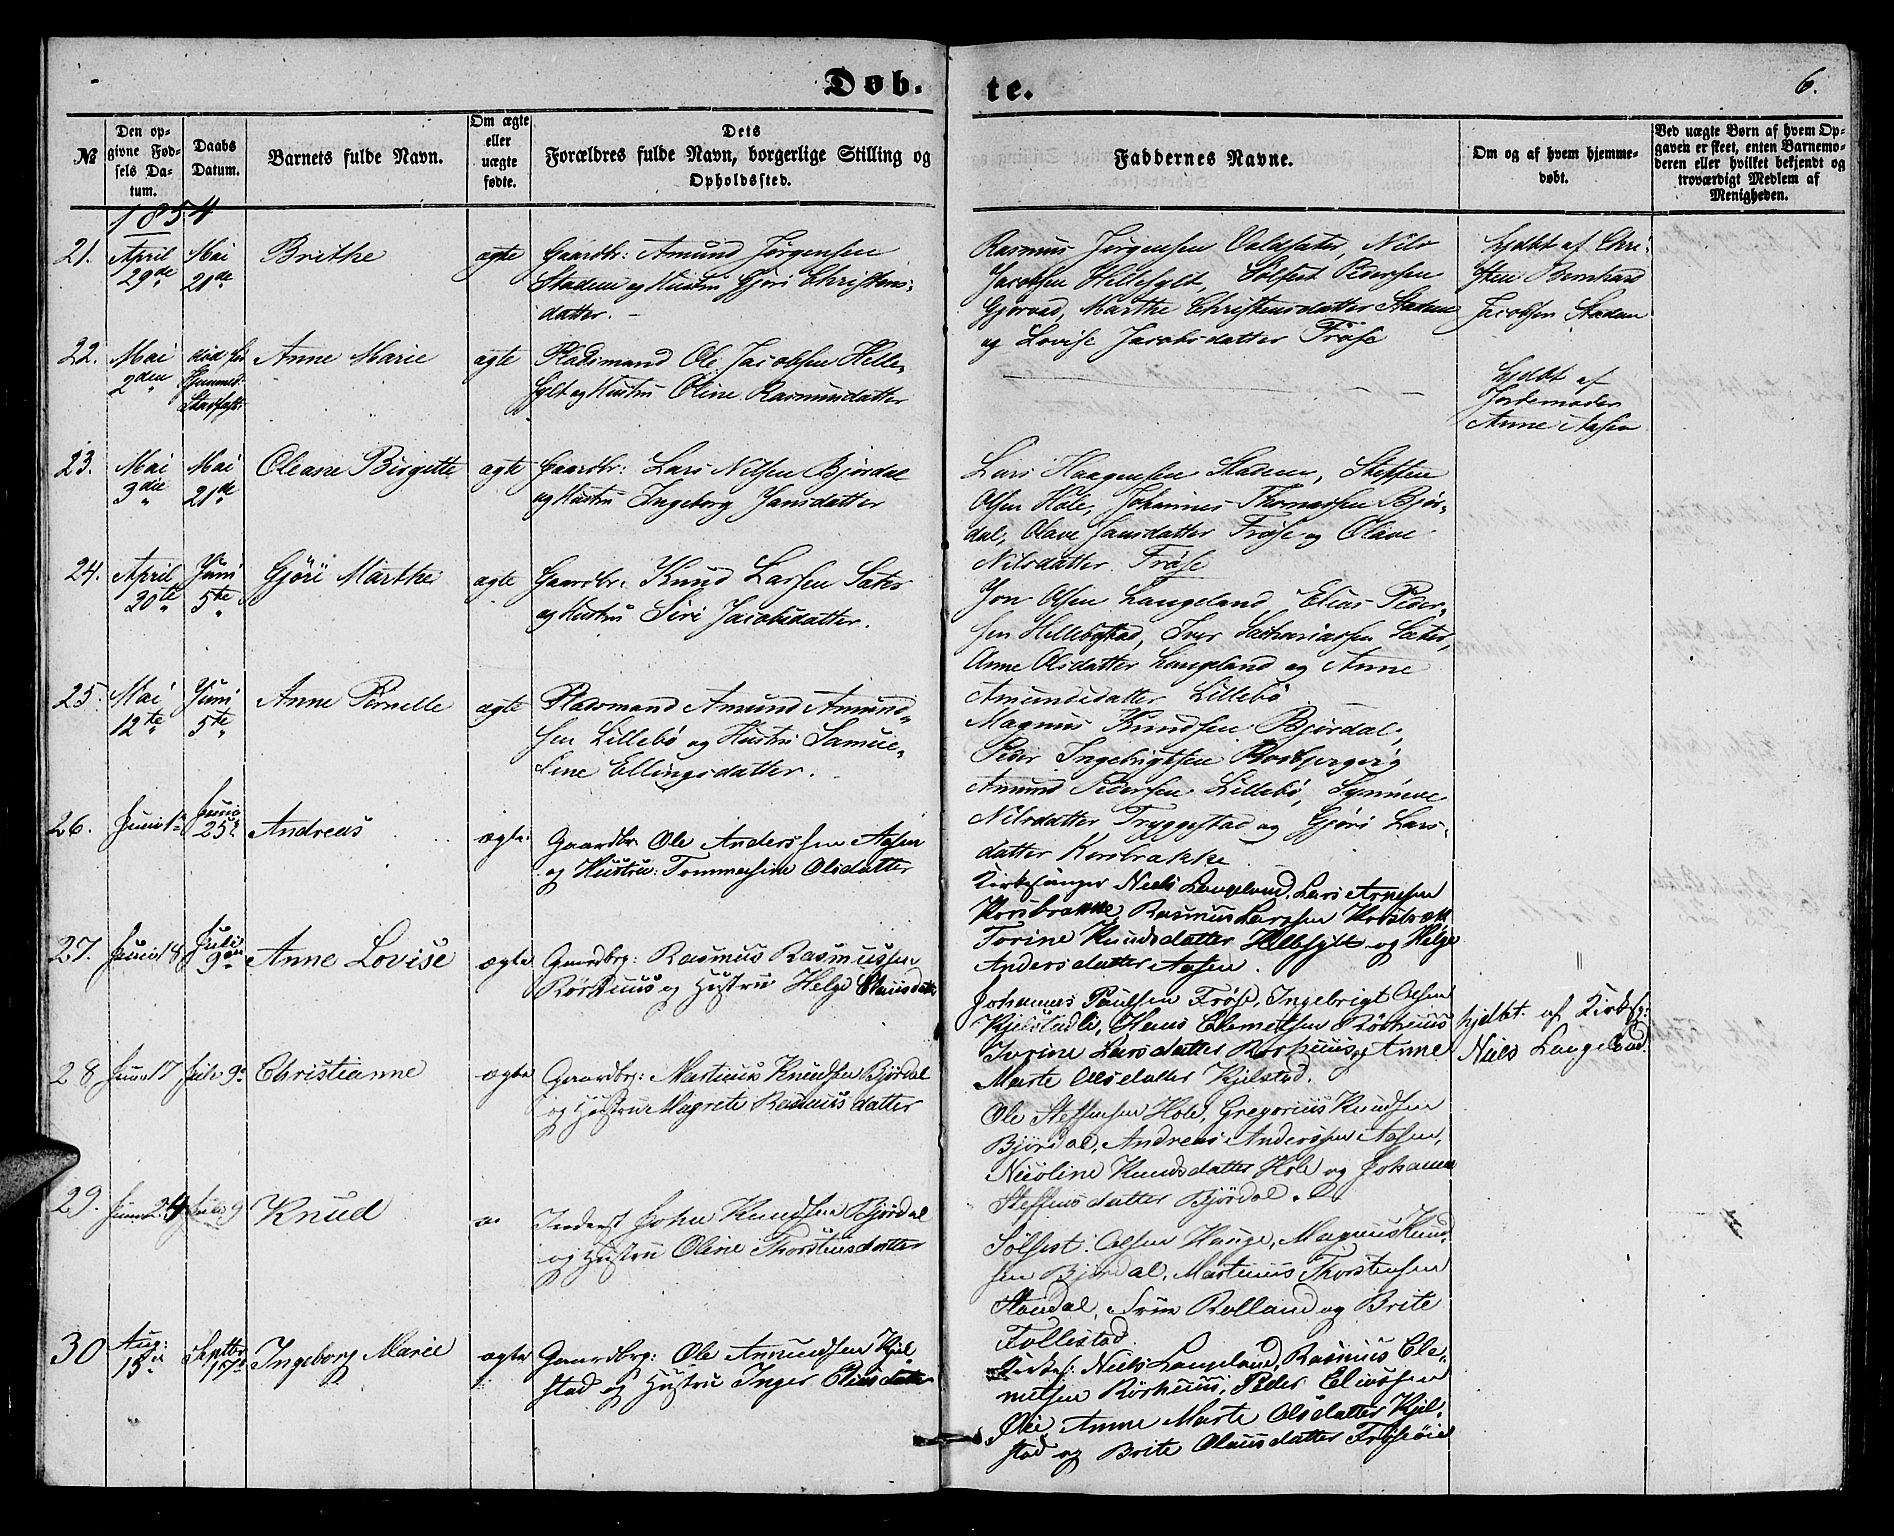 Døb- te. 6.
№ | Den opgivne Fødsels Datum. | Daabs Datum. | Barnets fulde Navn. | Om ægte eller uægte fødte. | Dets Forældres fulde Navn, borgerlige Stilling og Opholdssted. | Faddernes Navne. | Om og af hvem hjemmedøbt. | Ved uægte Børn af hvem Opgaven er skeet, enten Barnemoderen eller hvilket bekjendt og troværdigt Medlem af Menigheden.
1854
21. April 29de Mai 21de Brithe ægte Gaardbr: Amund Jørgensen
Staden og Hustru Gjøri Christens-
datter. –
Rasmus Jørgensen Nils
Jacobsen Hellesylt, Sølfest Pedersen
Gjørvad, Marthe Christensdatter Staden
og Lovise Jacobsdatter Frøse
hjdøbt af Chri-
sten Bernhard
Jacobsen Staden
22. Mai 2den Anne Marie ægte Pladsmand Ole Jacobsen Helle-
sylt og Hustru Oline Rasmusdatter
hjdøbt af
Jordemoder
Anne Aasen
23. Mai 3die Mai 21de Oleane Birgitte ægte Gaardbr: Lars Nilsen Bjørdal
og Hustru Ingeborg Jansdatter
Lars Haagensen Staden, Steffen
Olsen Hole, Johannes Thomassen Bjør-
dal, Olave Jansdatter Frøse og Olave
Nilsdatter Frøse
24. April 20de Juni 5te Gjøri Marthe ægte Gaardbr: Knud Larsen Sæter
og Hustru Siri Jacobsdatter.
Jon Olsen Langeland, Elias Peder-
sen Hellebostad, Iver Sachariassen Sæter,
Anne Olsdatter Langeland og Anne
Amundsdatter Lillebø
25. Mai 12te Juni 5te Anne Pernelle ægte Pladsmand Amund Amund-
sen Lillebø og Hustru Samue-
line Ellingsdatter.
Magnus Knudsen Bjørdal,
Peder Ingebrigtsen
Amund Pedersen Lillebø, Synneve
Nilsdatter Tryggestad og Gjøri Lars-
datter Korsbrække
26. Juni 1te Junii 25de Andreas ægte Gaardbr. Ole Anderssen Aasen
og Hustru: Tommesine Olsdatter
Kirkesanger Niels Langeland, Lars Arnesen
Korsbrække, Rasmus Larssen Korsbrække
Torine Knudsdatter Hellesylt og Helge
Andersdatter Aasen.
27. Juni 18 Juli 9de Anne Lovise ægte Gaardbrg: Rasmus Rasmussen
Rørhuus og Hustru Helge Clausdatter
Johannes Paulsen Frøse, Ingebrigt Olsen
Kjelstadli, Hans Clemetsen Rørhuus
Turine Larsdatter Rørhuus og Anne
Marte Olsdatter Kjelstad.
hjdbt. af Kirkesg:
Niels Langeland.
28 Juni 17 Juli 9de Christianne ægte Gaardbrg: Martinus Knudsen Bjørdal
og Hustru Magrete Rasmusdatter
Ole Steffensen Hole, Gregorius Knudsen
Bjørdal, Andreas Anderssen Aasen,
Nicoline Knudsdatter Hole og Johanne
Steffensdatter Bjørdal.
29. Juni 24 Juli 9 Knud Inderst John Knudsen Bjørdal
og Hustru Oline Thorstensdatter
Sølfest Olsen Hauge, Magnus Knud-
sen Bjørdal, Martinus Thorstensen
Standal, Rolland og Brite
Follestad.
30 Aug: 15de Septbr 17de Ingeborg Marie ægte Gaardbrg: Ole Amundsen Kjel-
stad og Hustru Inger Eliasdatter
Kirkes: Niels Langeland, Rasmus Cle-
metsen Rørhuus, Peder Eliassen
Øie, Anne Marte Olsdatter Kjel-
stad og Brite Olausdatter Frøisøie